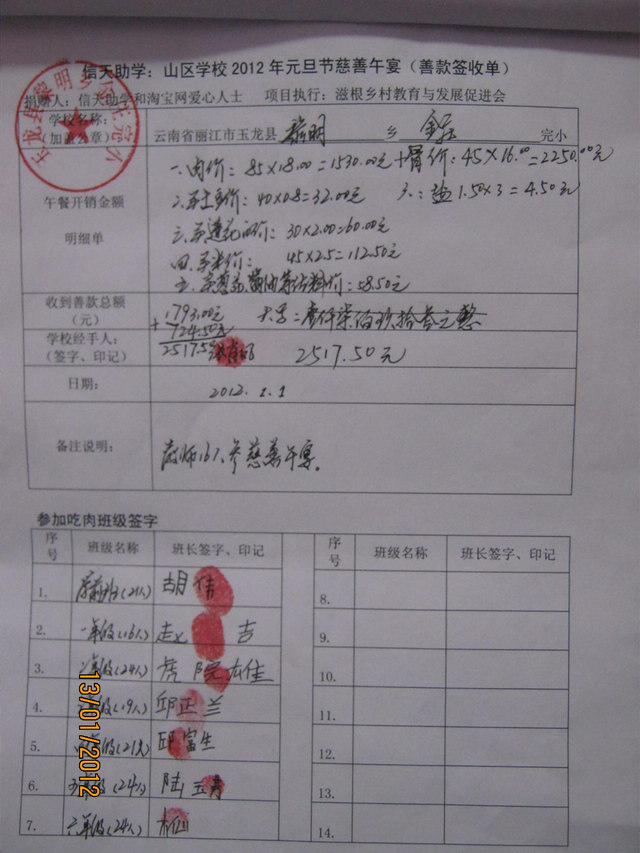 信天助学：山区学校2012年元旦节慈善午宴（善款签收单）
捐赠人：信天助学和淘宝网爱心人士 项目执行：滋根乡村教育与发展促进会
学校名称：
（加盖公章） 云南省丽江市玉龙县 黎明 乡 完小
午餐开销金额
明细单
一.肉价：85×18.00=1530.00元+骨价：45×16.00=2250.00元
40×0.8=32.00元 六：盐1.50×3=4.50元
30×2.00=60.00元
45×2.5=112.50元
58.50元
收到善款总额
（元）
1793.00元
+724.50元
2517.50
学校经手人：
（签字、印记）
2517.50元
日期： 2012.1.1
备注说明： 教师16人参慈善午宴。
参加吃肉班级签字
序号 班级名称 班长签字、印记 序号 班级名称 班长签字、印记
1. 学前班(21人) 胡倩 8.
2. 一年级(16人) 赵 吉 9.
3. 二年级(24人) 10.
4. 三年级(19人) 邱正兰 11.
5. 四年级(21人) 邱富生 12.
6. 五年级(24人) 陆玉青 13.
7. 六年级(24人) 14.
13/01/2012